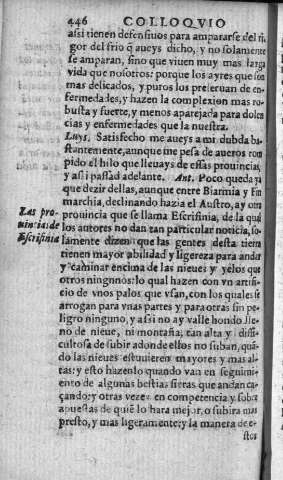 446 COLLOQVIO
assi tienen defensiuos para ampararse del ri
gor del frio q̃ aueys dicho, y no solamente
se amparan, sino que viuen muy mas larga
vida que nosotros: porque los ayres que son
mas delicados, y puros los preseruan de en-
fermedades, y hazen la complexion mas ro-
busta y fuerte, y menos aparejada para dolẽ
cias y enfermedades que la nuestra.
Luys. Satisfecho me aueys a mi dubda ba-
stantemente, aunque me pesa de aueros rom
pido el hilo que lleuays de essas prouincias,
y assi passad adelante. Ant. Poco queda ya
que dezir dellas, aunque entre Biarmia y Fin
marchia, declinando hazia el Austro, ay otra
prouincia que se llama Escrifinia, de la qual
Las pro-
uincias de
Escrifinia
los autores no dan tan particular noticia, so-
lamente dizen que las gentes desta tienen
tienen mayor abilidad y ligereza para andar
y caminar encima de las nieues y yelos que
otros ningunos: lo qual hazen con vn artifi-
cio de vnos palos que vsan, con los quales se
arrogan para vnas partes y para otras sin pe-
ligro ninguno, y assi no ay valle hondo lle-
no de nieue, ni montaña, tan alta y diffi-
cultosa de subir adonde ellos no suban, quã-
do las nieues estuuieren mayores y mas al-
tas: y esto hazenlo quando van en seguimi-
ento de algunas bestias fieras que andan ca-
çando: y otras vezes en competencia y sobre
apuestas de quiẽ lo hara mejor, o subira mas
presto, y mas ligeramente: y la manera de e-
stos